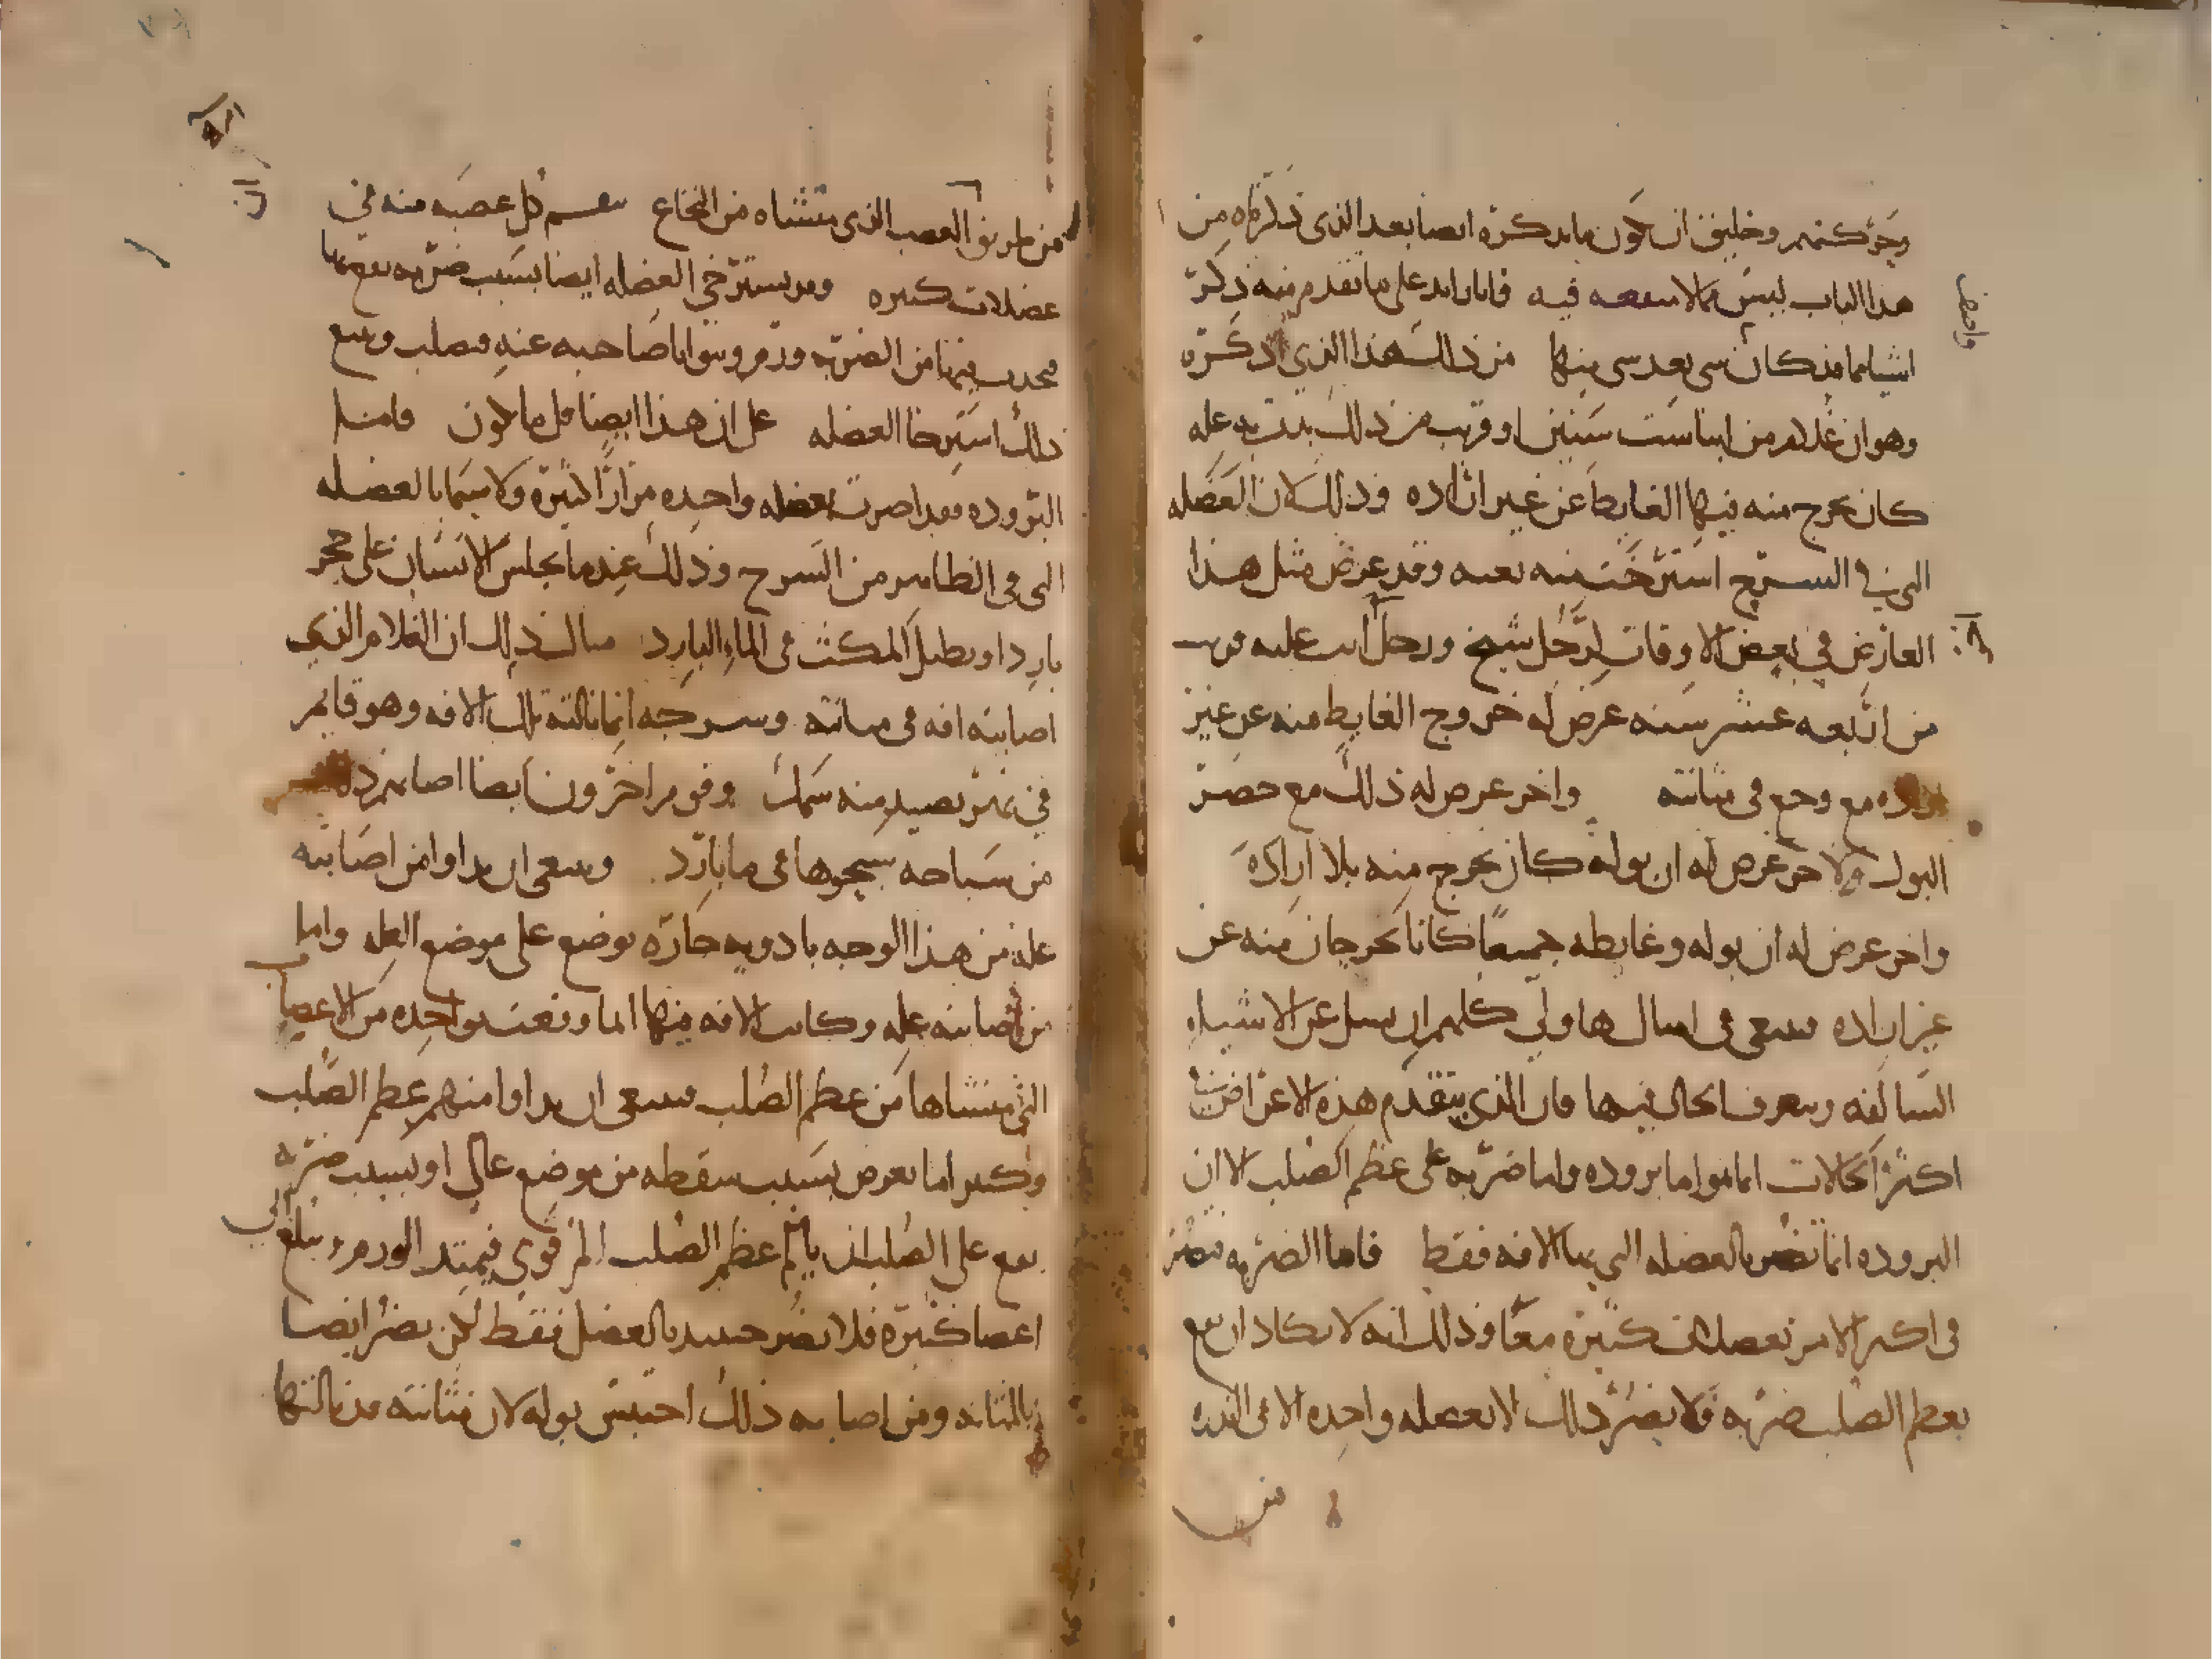 وحركتهم وخليق ان يكون ما نذكره ايضا بعد الذي ذكرناه من
هذا الباب ليس مما لا ينتفع به فيه فانا زايد على ما تقدم منه ذكر
اشياء مما قد كان شي بعد شي منها من ذلك هذا الذي اذكره
وهو ان غلام من ابناء ست سنين او قريب من ذلك به عله
كان يخرج منه فيها الغايط عن غير اراده وذلك لان العضله
التي في السرج استرخت منه بغته وقد عرض مثل هذا
العارض في بعض الاوقات لرجل شيخ ورجل اتت عليه قريب
من اربعه عشر سنه عرض له خروج الغايط منه عن غير
اراده مع وجع في مثانته واخر عرض له ذلك مع حصر
البول ولاخر عرض له ان بوله كان يخرج منه بلا اراده
واخر عرض له ان بوله وغايطه جميعا كانا يخرجان منه عن
غير اراده فينبغي في امثال هاولي كلهم ان يسل عن الاشياء
السالفه ويتعرف الحال فيها فان الذي يتقدم هذه الاعراض في
اكثر الحالات انما هو اما بروده واما ضربه على عظم الصلب الا ان
البروده انما تضر بالعضله التي بها الافه فقط فاما الضربه فتضر
في اكثر الامر بعضلات كثيره معا وذلك انه لا يكاد ان يقع
بعظم الصلب ضربه فلا يضر ذلك الا بعضله واحده الا في الندره
من
من طريق العصب الذي منشاه من النخاع ينقسم كل عصبه منه في
عضلات كثيره وقد يسترخي العضله ايضا بسبب ضربه تقع بها
فيحدث فيها من الضربه ورم ويتوانا صاحبه عنه فيصلب ويتبع
ذلك استرخا العضله على ان هذا ايضا قل ما يكون فاما
البروده فقد اضرت بعضله واحده مرارا كثيره ولا سيما بالعضله
التي في الظاهر من السرج وذلك عند ما يجلس الانسان على حجر
بارد او يطيل المكث في الماء البارد مثال ذلك ان الغلام الذي
اصابته افه في مثانته وسرجه انما نالته تلك الافه وهو قايم
في نهر يصيد منه سمك وقوم اخرون ايضا اصابهم ذلك
من سباحه سبحوها في ما بارد وينبغي ان يداوا من اصابته
عله من هذا الوجه بادويه حاره توضع على موضع العله واما
من اصابته عله وكانت الافه فيها انما وقعت بواحده من الاعصاب
التي منشاها من عظم الصلب فينبغي ان يداوا منهم عظم الصلب
وكثيرا ما يعرض بسبب سقطه من موضع عالي او بسبب ضربه
تقع على الصلب ان يالم عظم الصلب الم قوي فيمتد الورم ويبلغ الى
اعصاب كثيره فلا يضر حينيذ بالعضل فقط لكن يضر ايضا
بالمثانه ومن اصابه ذلك احتبس بوله لان مثانته قد نالتها